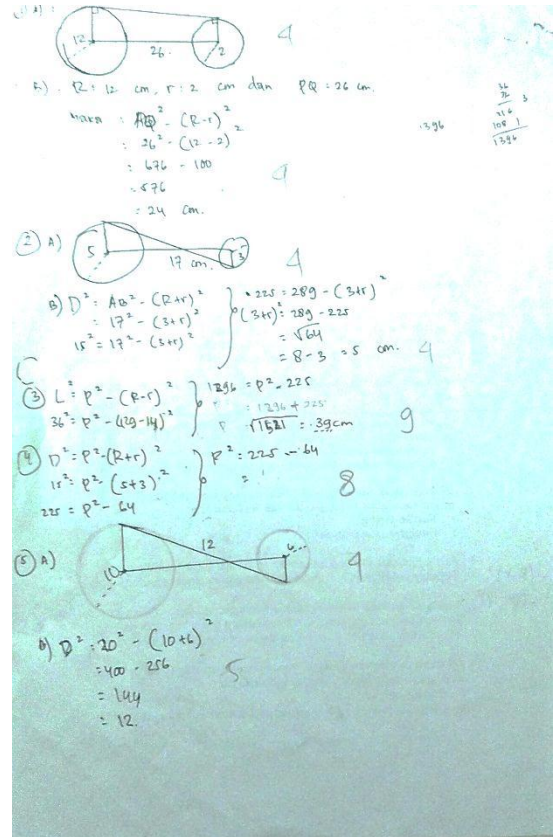 A)
12
26
2
4
B). R = 12 cm, r = 2 cm dan PQ = 26 cm.
maka : PQ² - (R-r)²
= 26² - (12 - 2)²
= 676 - 100
= 576
= 24 cm.
4
1396
36
36
3
216
108 1
1396
② A)
5
17 cm.
3
4
B) D² = AB² - (R+r)²
= 17² - (3+r)²
15² = 17² - (3+r)²
• 225 = 289 - (3+r)²
(3+r)² = 289 - 225
= √64
= 8 - 3 = 5 cm.
4
③ L² = P² - (R-r)²
36² = P² - (29-14)²
1296 = P² - 225
= 1296 + 225
√1521 = 39 cm
9
④ D² = P² - (R+r)²
15² = P² - (5+3)²
225 = P² - 64
P² = 225 - 64
=
8
⑤ A)
10
12
6
4
B) D² = 20² - (10+6)²
= 400 - 256
= 144
= 12.
5